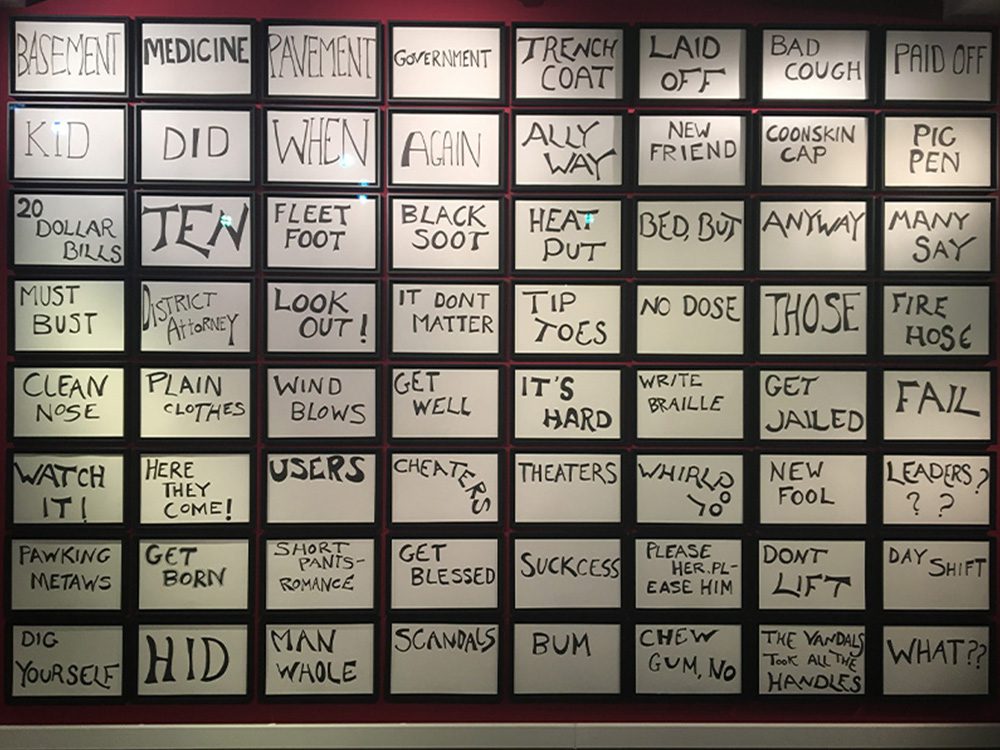 BASEMENT
MEDICINE
PAVEMENT
GOVERNMENT
TRENCH
COAT
LAID
OFF
BAD
COUGH
PAID OFF
KID
DID
WHEN
AGAIN
ALLY
WAY
NEW
FRIEND
COONSKIN
CAP
PIG
PEN
20
DOLLAR
BILLS
TEN
FLEET
FOOT
BLACK
SOOT
HEAT
PUT
BED, BUT
ANYWAY
MANY
SAY
MUST
BUST
DISTRICT
ATTORNEY
LOOK
OUT!
IT DONT
MATTER
TIP
TOES
NO DOSE
THOSE
FIRE
HOSE
CLEAN
NOSE
PLAIN
CLOTHES
WIND
BLOWS
GET
WELL
IT'S
HARD
WRITE
BRAILLE
GET
JAILED
FAIL
WATCH
IT!
HERE
THEY
COME!
USERS
CHEATERS
THEATERS
WHIRLPOOL
NEW
FOOL
LEADERS?
? ?
PAWKING
METAWS
GET
BORN
SHORT
PANTS-
ROMANCE-
GET
BLESSED
SUCKCESS
PLEASE
HER.PL-
EASE HIM
DONT
LIFT
DAY SHIFT
DIG
YOURSELF
HID
MAN
WHOLE
SCANDALS
BUM
CHEW
GUM, NO
THE VANDALS
TOOK ALL THE
HANDLES
WHAT??